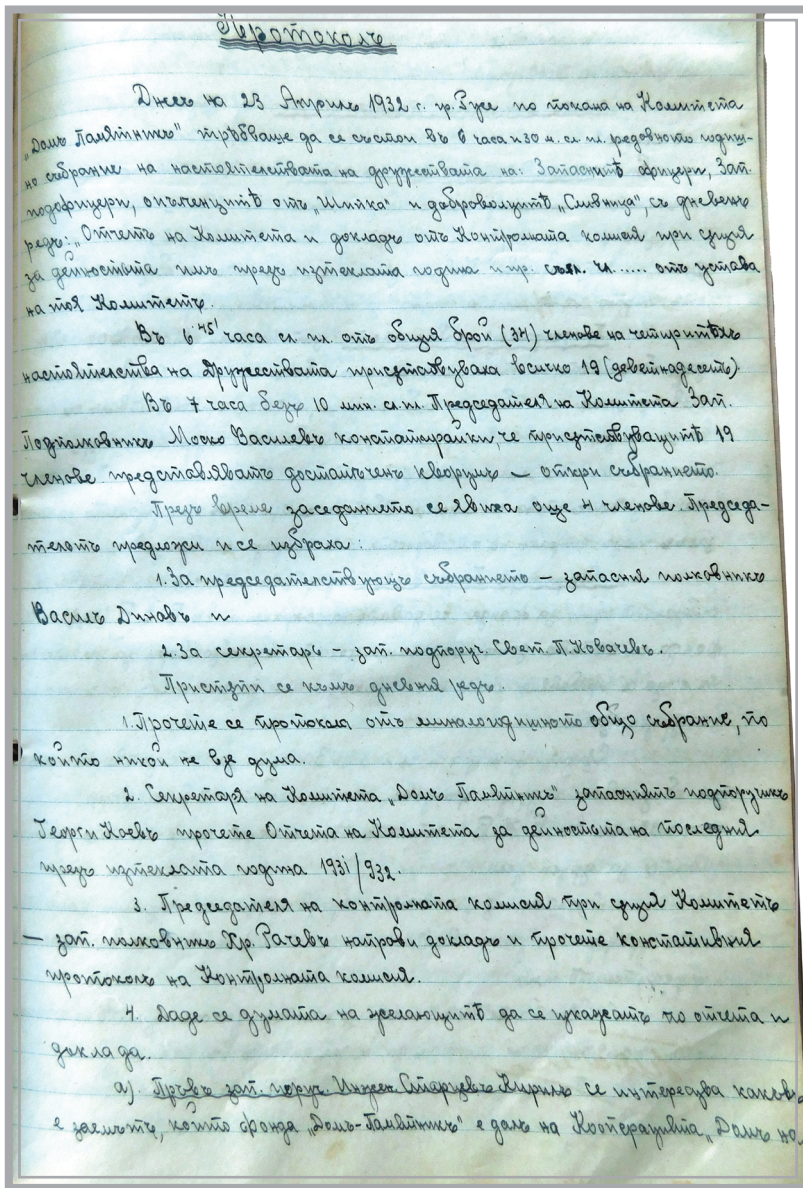 Протоколъ
Днесъ на 23 Априлъ 1932 г. гр. Русе по покана на Комитета
„Домъ Паметникъ" трѣбваше да се състои въ 6 часа и 30 м. сл. пл. редовното годиш-
но събрание на настоятелствата на дружествата на: Запаснитѣ офицери, Зап.
подофицери, опълченцитѣ отъ „Шипка" и доброволцитѣ „Сливница", съ дневенъ
редъ: „Отчетъ на Комитета и докладъ отъ Контролната комисия при сѫщия
за дейностьта имъ презъ изтеклата година и пр. съгл. чл. ..... отъ устава
на тоя Комитетъ.
Въ 6 45' часа сл. пл. отъ общия брой (34) членове на четиритѣхъ
настоятелства на Дружествата присѫтствуваха всичко 19 (деветнадесетъ).
Въ 7 часа безъ 10 мин. сл. пл. Председателя на Комитета Зап.
Подполковникъ Моско Василевъ констатирайки, че присѫтствуващитѣ 19
членове представяватъ достатъченъ кворумъ — откри събранието.
Презъ време заседанието се явиха още 4 членове. Председа-
тельтъ предложи и се избраха:
1. За председателствующъ събранието — запасния полковникъ
Василъ Динавъ и
2. За секретарь — зап. подпоруч. Свет. П. Ковачевъ.
Пристѫпи се къмъ дневния редъ.
1. Прочете се протокола отъ миналогодишното общо събрание, по
който никой не взе дума.
2. Секретаря на Комитета „Домъ Паметникъ" запасниятъ подпоручикъ
Георги Коевъ прочете Отчета на Комитета за дейностьта на последния
презъ изтеклата година 1931/932.
3. Председателя на контролната комисия при сѫщия Комитетъ
— зап. полковникъ Хр. Рачевъ направи докладъ и прочете констативния
протоколъ на Контролната комисия.
4. Даде се думата на желающитѣ да се изкажатъ по отчета и
доклада.
а). Пръвъ зап. поруч. Инжен. Старцевъ Кирилъ се интересува какъвъ
е заемътъ, който фонда „Домъ-Паметникъ" е далъ на Кооперацията „Домъ на